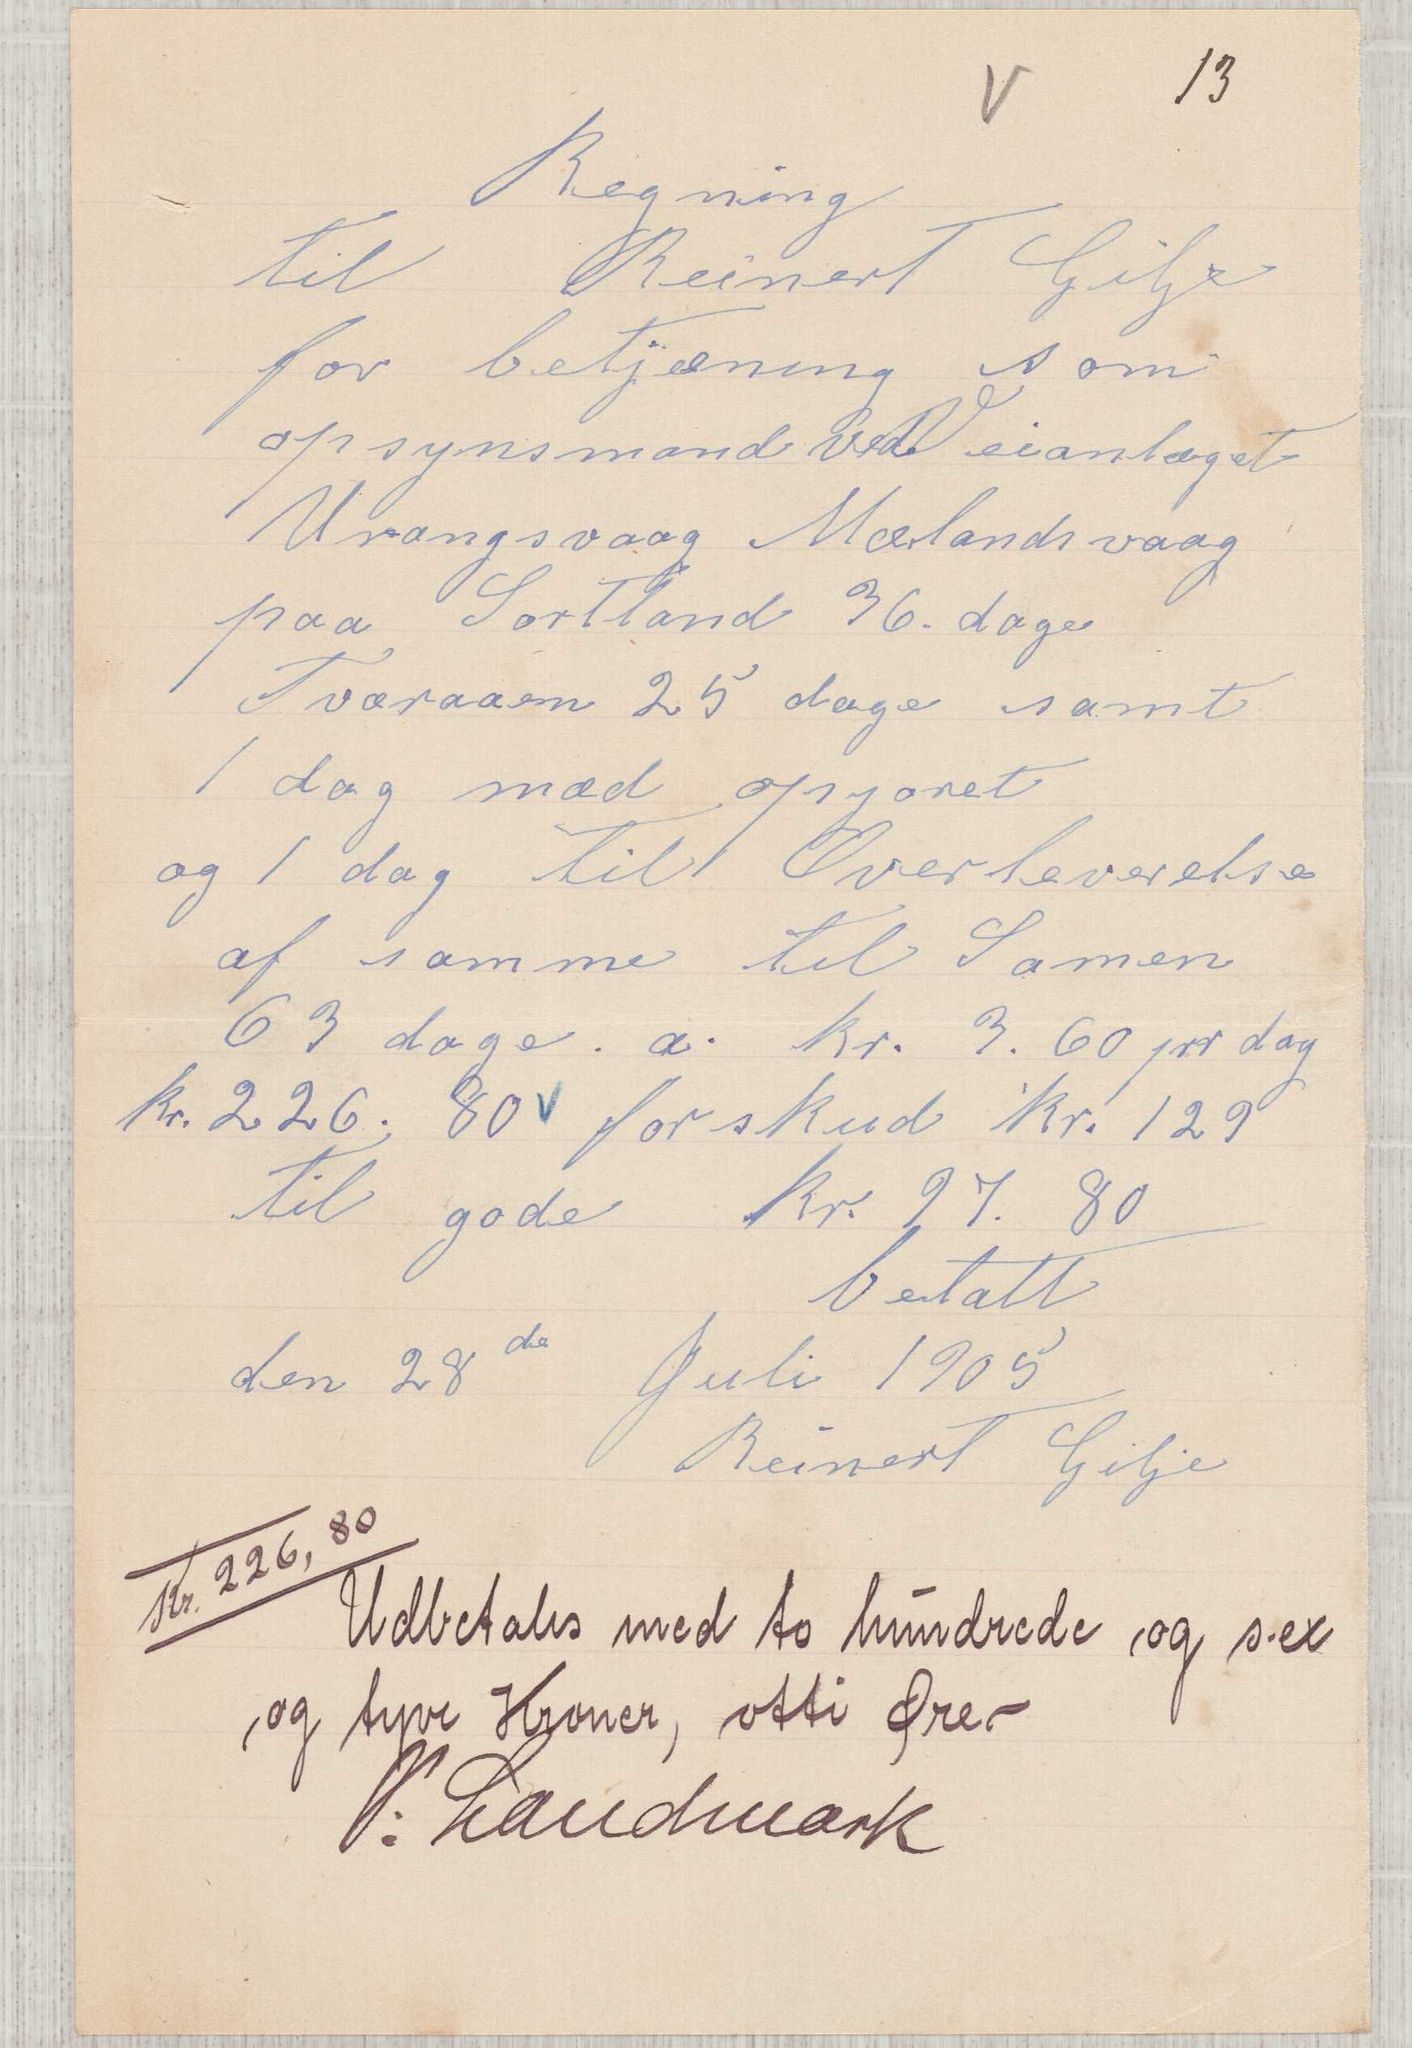 V 13
Regning
til Reinert Gilje
for betjæning som
opsynsmand ved Veianlæget
Urangsvaag Mælandsvaag
paa Sortland 36. dage
Tværaaen 25 dage samt
1 dag mæd opgjøret
og 1 dag til Overleverelse
af samme til Samen
63 dage. a. kr. 3.60 prr dag
kr. 226. 80 v forskud kr. 129
til gode kr. 97. 80
betalt
den 28 de Juli 1905
Reinert Gilje
Kr. 226,80
Udbetales med to hundrede og sex
og tyve Kroner, otti Øre.-
P. Landmark